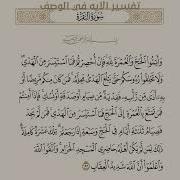 تفسير الآيه في الوصف
سُورَةُ البَقَرَةِ
بِسْمِ اللَّهِ الرَّحْمَٰنِ الرَّحِيمِ
وَأَتِمُّوا۟ ٱلْحَجَّ وَٱلْعُمْرَةَ لِلَّهِ فَإِنْ أُحْصِرْتُمْ فَمَا ٱسْتَيْسَرَ مِنَ ٱلْهَدْىِ
وَلَا تَحْلِقُوا۟ رُءُوسَكُمْ حَتَّىٰ يَبْلُغَ ٱلْهَدْىُ مَحِلَّهُۥ فَمَن كَانَ مِنكُم مَّرِيضًا أَوْ
بِهِۦٓ أَذًى مِّن رَّأْسِهِۦ فَفِدْيَةٌ مِّن صِيَامٍ أَوْ صَدَقَةٍ أَوْ نُسُكٍ فَإِذَآ أَمِنتُمْ
فَمَن تَمَتَّعَ بِٱلْعُمْرَةِ إِلَى ٱلْحَجِّ فَمَا ٱسْتَيْسَرَ مِنَ ٱلْهَدْىِ فَمَن لَّمْ يَجِدْ
فَصِيَامُ ثَلَٰثَةِ أَيَّامٍ فِى ٱلْحَجِّ وَسَبْعَةٍ إِذَا رَجَعْتُمْ تِلْكَ عَشَرَةٌ كَامِلَةٌ
ذَٰلِكَ لِمَن لَّمْ يَكُنْ أَهْلُهُۥ حَاضِرِى ٱلْمَسْجِدِ ٱلْحَرَامِ وَٱتَّقُوا۟ ٱللَّهَ
وَٱعْلَمُوٓا۟ أَنَّ ٱللَّهَ شَدِيدُ ٱلْعِقَابِ